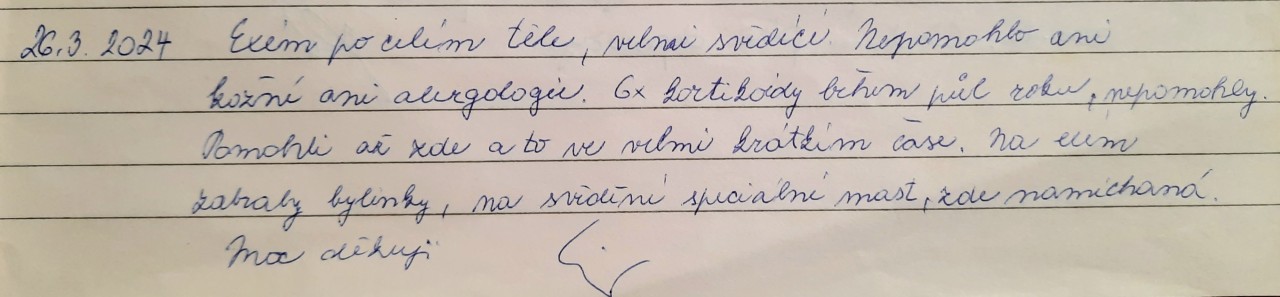 26.3. 2024 Exém po celém těle, velmi svědící. Nepomohlo ani
kožní ani alergologie. 6x kortikoidy během půl roku, nepomohly.
Pomohli až zde a to ve velmi krátkém čase. Na exém
zabraly bylinky, na svědění speciální mast, zde namíchaná.
Moc děkuji